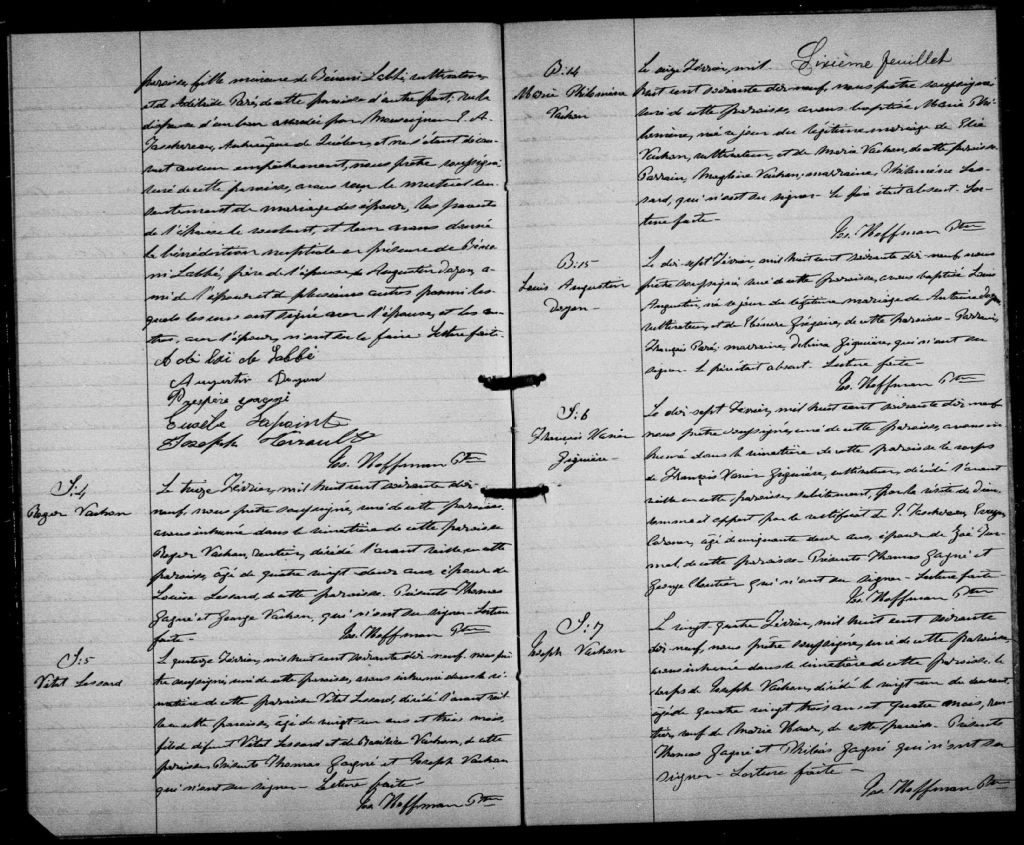 paroisse, fille mineure de Bénoni Labbé, cultivateur,
et d'Adélaïde Paré, de cette paroisse d'autre part, vu la
dispense d'un ban accordée par Monseigneur E. A.
Taschereau, Archevêque de Québec, et ne s'étant décou-
vert aucun empêchement, nous prêtre soussigné
curé de cette paroisse, avons reçu le mutuel con-
sentement de mariage des époux, les parents
de l'épouse le voulant, et leur avons donné
la bénédiction nuptiale en présence de Béno-
ni Labbé, père de l'épouse, de Augustin Doyon, a-
mi de l'époux et de plusieurs autres parmi les-
quels les uns ont signé avec l'épouse, et les au-
tres, avec l'époux, n'ont su le faire. Lecture faite.
Labbé
Augustin Doyon
Prospère
Eusèbe Lapointe
Joseph
Jos. Hoffman Ptre
S:4
Roger Vachon
Le treize Février, mil huit cent soixante dix-
neuf, nous prêtre soussigné, curé de cette paroisse
avons inhumé dans le cimetière de cette paroisse
Roger Vachon, rentier, décédé l'avant veille en cette
paroisse, âgé de quatre vingt deux ans, époux de
Louise Lessard, de cette paroisse. Présents Thomas
Gagné et George Vachon, qui n'ont su signer. Lecture
faite.
Jos. Hoffman Ptre
S:5
Vital Lessard
Le quatorze Février, mil huit cent soixante dix-neuf, nous prê-
tre soussigné, curé de cette paroisse, avons inhumé dans le ci-
metière de cette paroisse Vital Lessard, décédé l'avant veil-
le en cette paroisse, âgé de vingt un ans et trois mois,
fils de défunt Vital Lessard et de Basilice Vachon, de cette
paroisse. Présents Thomas Gagné et Joseph Vachon
qui n'ont su signer. Lecture faite –
Jos. Hoffman Ptre
Sixième feuillet
B:14
Marie Philomène
Vachon
Le seize Février, mil
huit cent soixante dix-neuf, nous prêtre soussigné
curé de cette paroisse, avons baptisé Marie Phi-
lomène, née ce jour du légitime mariage de Elie
Vachon, cultivateur, et de Marie Vachon, de cette paroisse.
Parrain, Vachon, marraine, Philomène Les-
sard, qui n'ont su signer. Le père était absent. Lec-
ture faite –
Jos. Hoffman Ptre
B:15
Louis Augustin
Doyon –
Le dix-sept Février, mil huit cent soixante dix-neuf, nous
prêtre soussigné curé de cette paroisse, avons baptisé Louis
Augustin, né ce jour du légitime mariage de Antoine Doyon
cultivateur, et de Grégoire, de cette paroisse – Parrain,
François Paré, marraine, Delvina Giguère, qui n'ont su
signer. Le père était absent. Lecture faite –
Jos. Hoffman Ptre
S:6
François Xavier
Giguère –
Le dix-sept Février, mil huit cent soixante dix-neuf
nous prêtre soussigné, curé de cette paroisse, avons in-
humé dans le cimetière de cette paroisse le corps
de François Xavier Giguère, cultivateur, décédé l'avant
veille en cette paroisse, subitement, par la visite de Dieu,
comme il appert par le certificat de T. Taschereau, Ecuyer,
Coroner, âgé de cinquante deux ans, époux de Zoé
de cette paroisse. Présents Thomas Gagné et
George Cloutier qui n'ont su signer – Lecture faite –
Jos. Hoffman Ptre
S:7
Joseph Vachon
Le vingt quatre Février, mil huit cent soixante
dix-neuf, nous prêtre soussigné, curé de cette paroisse,
avons inhumé dans le cimetière de cette paroisse le
corps de Joseph Vachon, décédé le vingt un du courant
âgé de quatre vingt trois ans et quatre mois, ren-
tier, veuf de Marie de cette paroisse. Présents
Thomas Gagné et Gagné qui n'ont su
signer – Lecture faite –
Jos. Hoffman Ptre